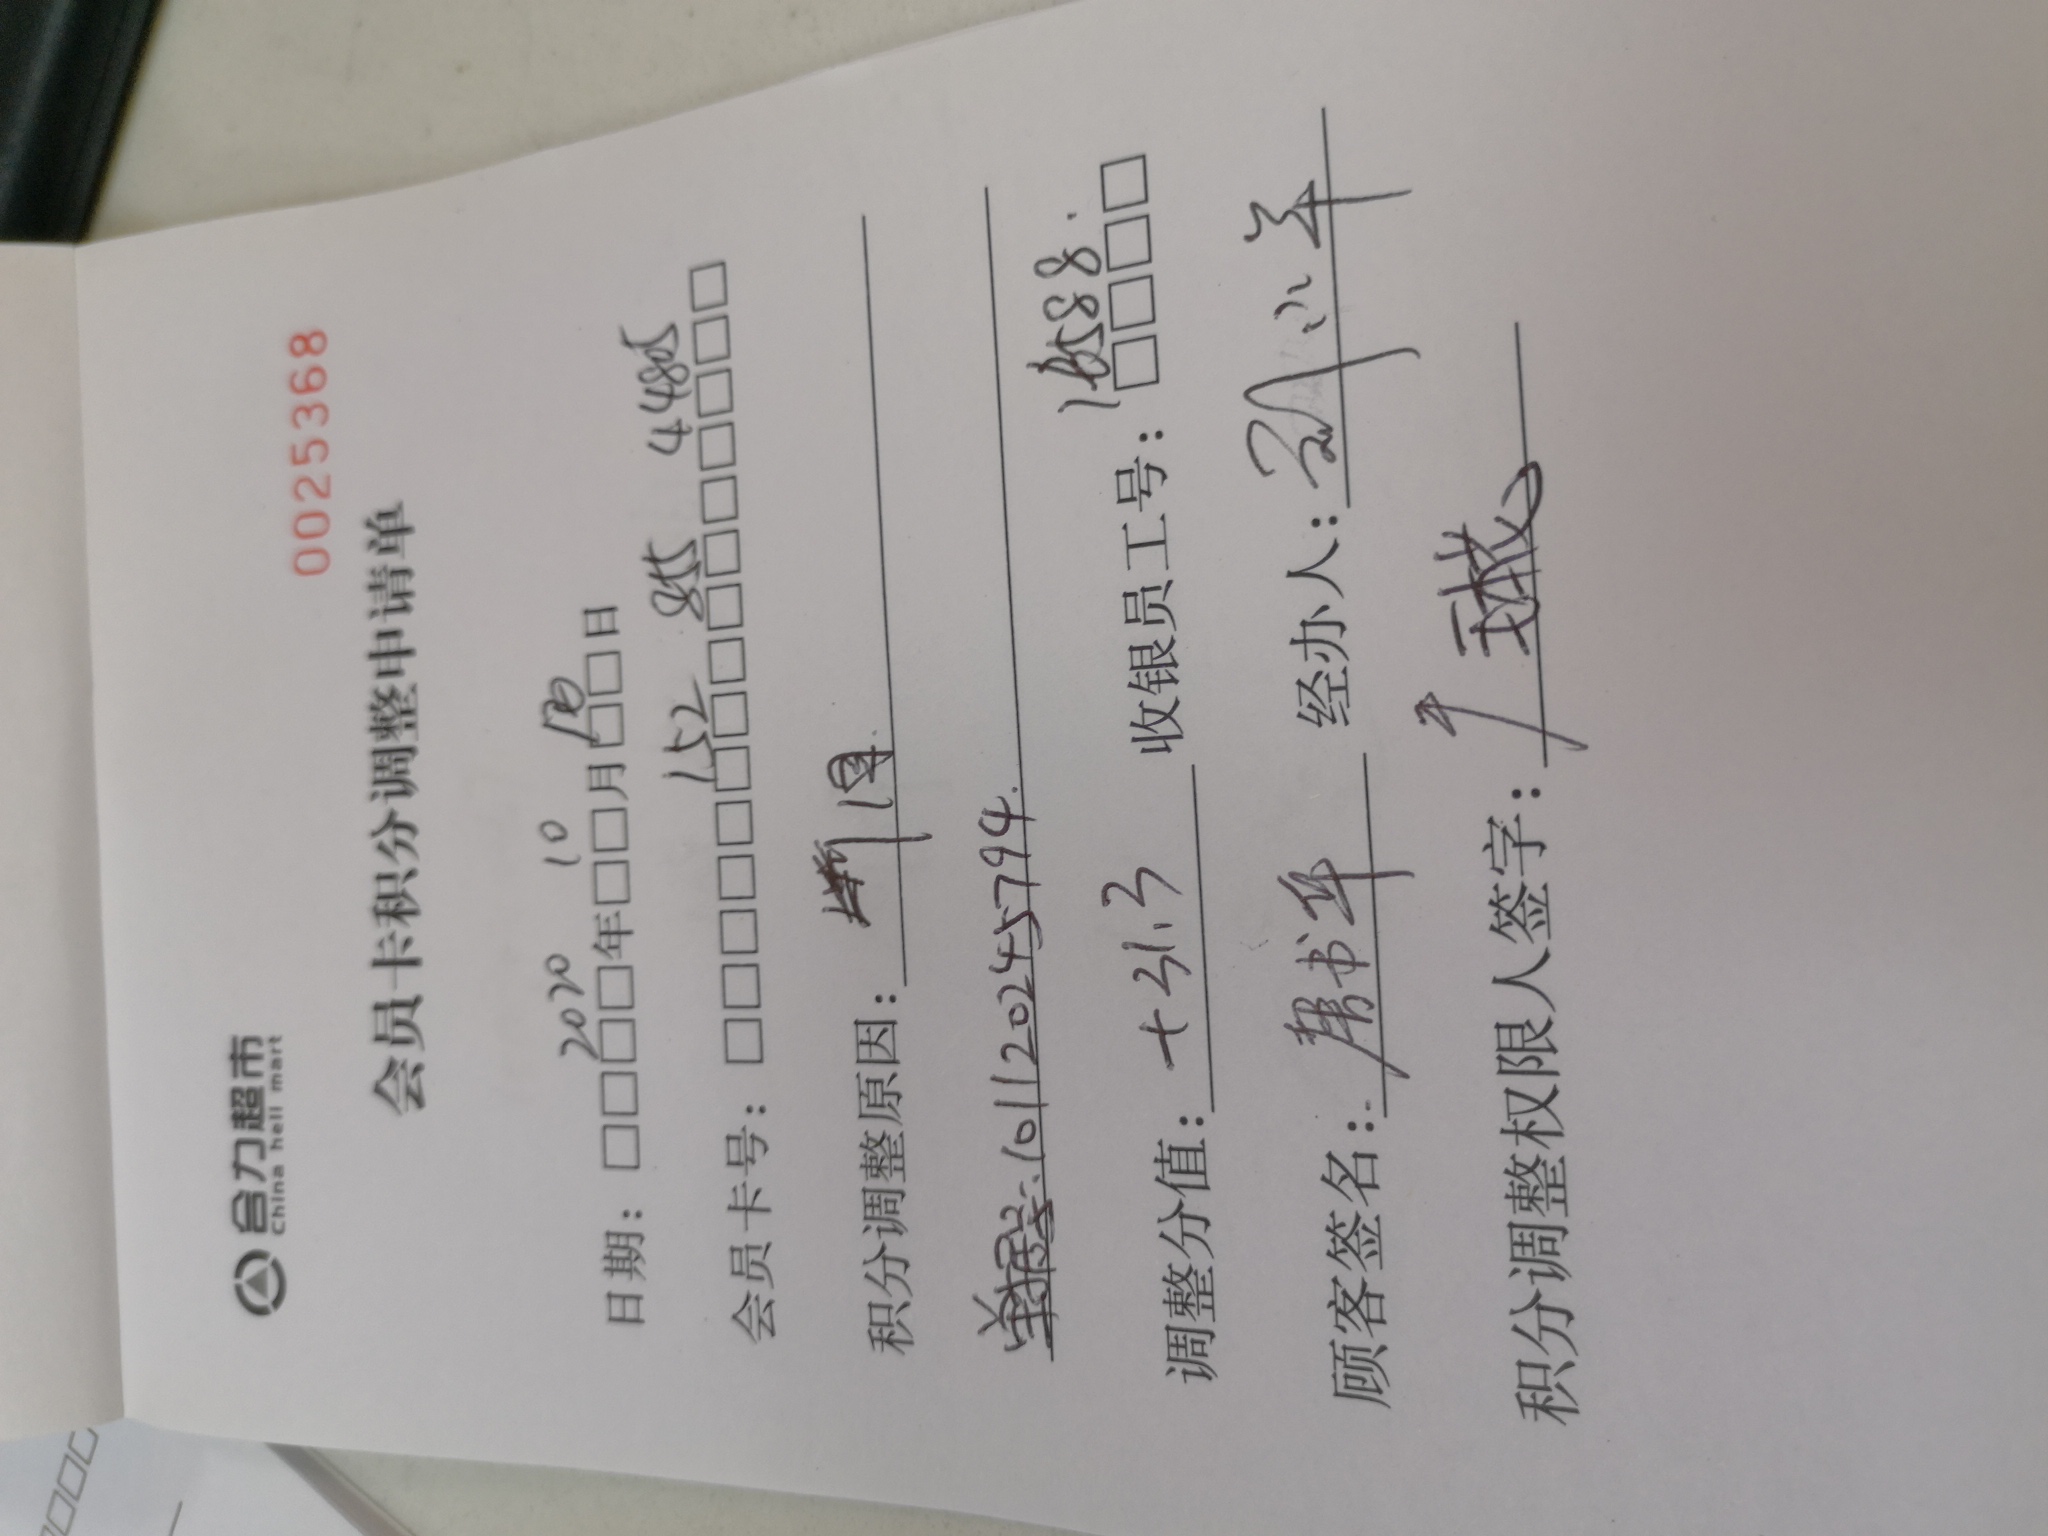 合力超市
China heli mart
0025368
会员卡积分调整申请单
日期：2020年10月日
会员卡号：152 855 4485
积分调整原因：断网
101120245794.
调整分值：+31.3 收银员工号：588
顾客签名： 经办人：
积分调整权限人签字：